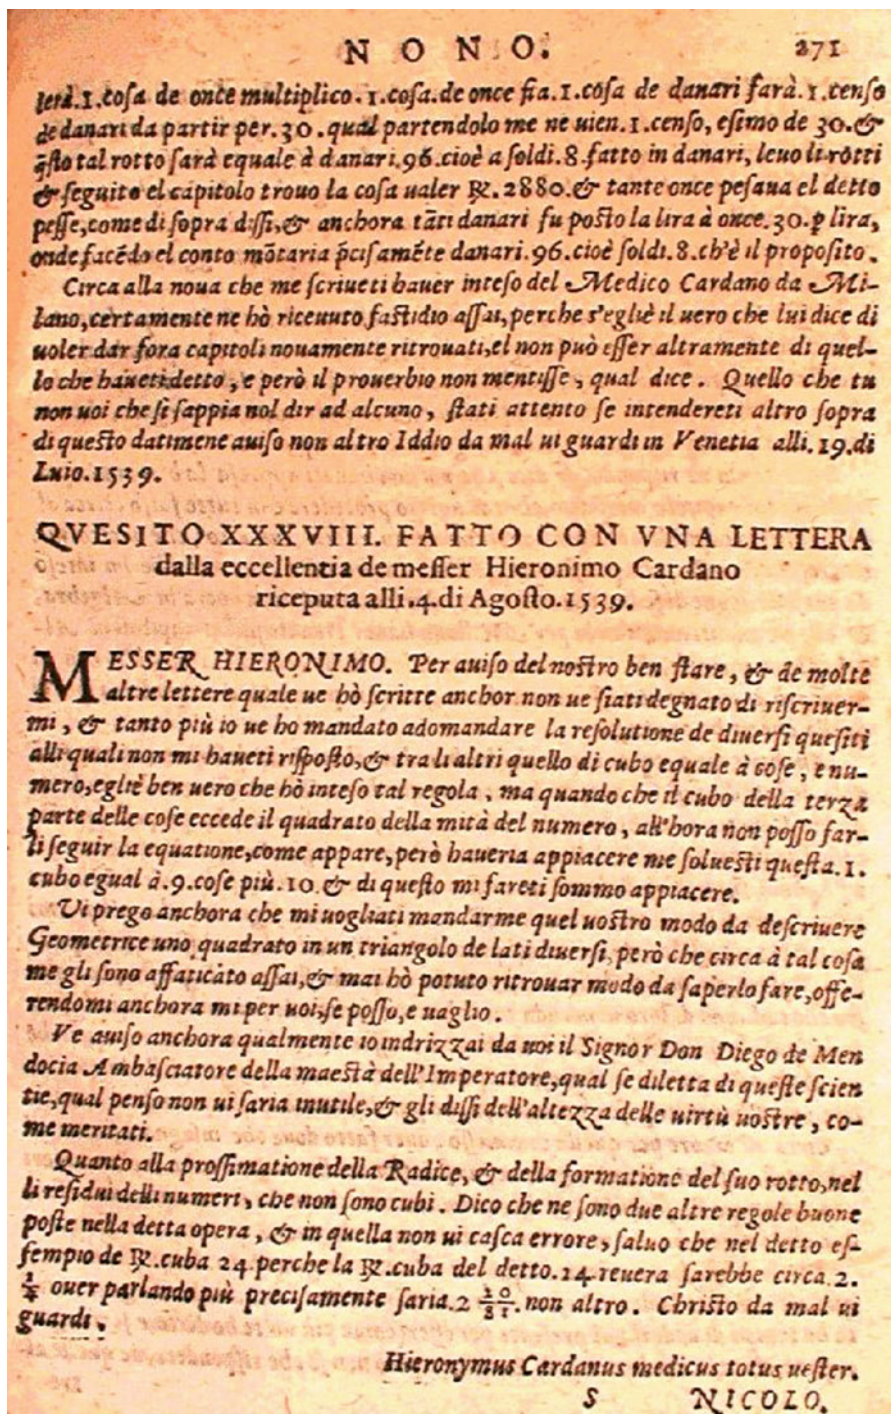 NONO. 271
lera.1.cosa de once multiplico.1.cosa.de once fia.1.cosa de danari farà.1.censo
de danari da partir per.30.qual partendolo me ne uien.1.censo, esimo de 30.&
q̃sto tal rotto sarà equale à danari.96.cioè a soldi.8.fatto in danari, leuo li rotti
& seguito el capitolo trouo la cosa ualer ℞.2880.& tante once pesaua el detto
pesse,come di sopra dissi,& anchora tãti danari fu posto la lira à once.30.ꝑ lira,
onde facẽdo el conto mõtaria p̃cisamẽte danari.96.cioè soldi.8.ch'è il proposito.
Circa alla noua che me scriueti hauer inteso del Medico Cardano da Mi-
lano,certamente ne hò riceuuto fastidio assai,perche s'egliè il uero che lui dice di
uoler dar fora capitoli nouamente ritrouati,el non può esser altramente di quel-
lo che haueti detto, e però il prouerbio non mentisse, qual dice. Quello che tu
non uoi che si sappia nol dir ad alcuno, stati attento se intendereti altro sopra
di questo datimene auiso non altro Iddio da mal ui guardi in Venetia alli.19.di
Luio.1539.
QVESITO XXXVIII. FATTO CON VNA LETTERA
dalla eccellentia de messer Hieronimo Cardano
riceputa alli.4.di Agosto.1539.
MESSER HIERONIMO. Per auiso del nostro ben stare, & de molte
altre lettere quale ue hò scritte anchor non ue siati degnato di riscriuer-
mi, & tanto più io ue ho mandato adomandare la resolutione de diuersi quesiti
alli quali non mi haueti risposto,& tra li altri quello di cubo equale à cose, e nu-
mero,egliè ben uero che hò inteso tal regola, ma quando che il cubo della terza
parte delle cose eccede il quadrato della mità del numero, all'hora non posso far-
li seguir la equatione,come appare,però haueria appiacere me soluesti questa.1.
cubo egual à.9.cose più.10.& di questo mi fareti sommo appiacere.
Vi prego anchora che mi uogliati mandarme quel uostro modo da descriuere
Geometrice uno quadrato in un triangolo de lati diuersi, però che circa à tal cosa
me gli sono affaticato assai,& mai hò potuto ritrouar modo da saperlo fare,offe-
rendomi anchora mi per uoi,se posso,e uaglio.
Ve auiso anchora qualmente io indrizzai da uoi il Signor Don Diego de Men
docia Ambasciatore della maestà dell'Imperatore,qual se diletta di queste scien
tie,qual penso non ui saria inutile,& gli dissi dell'altezza delle uirtù uostre, co-
me meritati.
Quanto alla prossimatione della Radice, & della formatione del suo rotto,nel
li residui delli numeri, che non sono cubi. Dico che ne sono due altre regole buone
poste nella detta opera, & in quella non ui casca errore, saluo che nel detto es-
sempio de ℞.cuba 24.perche la ℞.cuba del detto.24.reuera sarebbe circa.2.
ouer parlando più precisamente saria.2 non altro. Christo da mal ui
guardi.
Hieronymus Cardanus medicus totus uester.
S NICOLO.